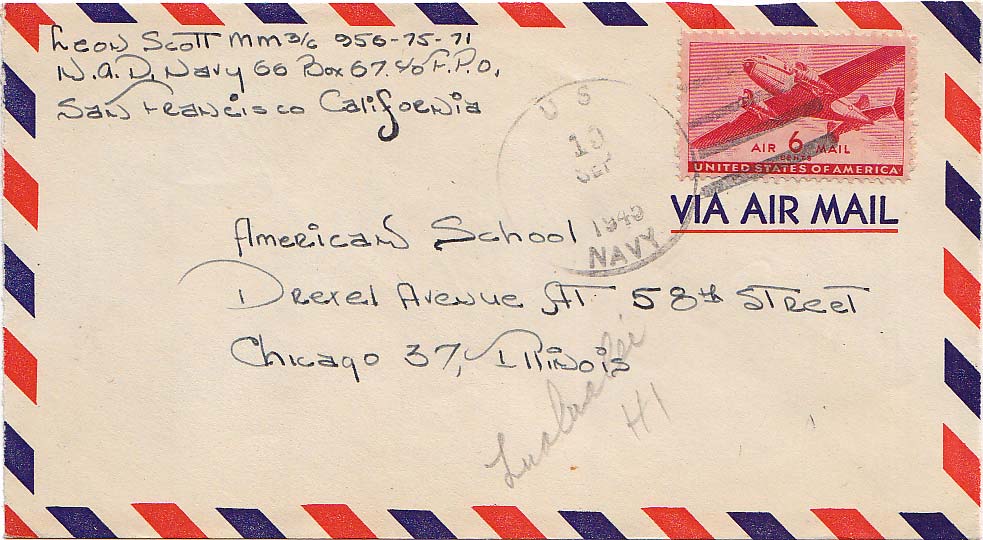 Leon Scott MM3/c 956-75-71
N.A.D. Navy 66 Box 67. c/o F.P.O,
San Francisco California
U S
10
SEP
1949
NAVY
AIR 6 MAIL
CENTS
UNITED STATES OF AMERICA
VIA AIR MAIL
American School
Drexel Avenue At 58th Street
Chicago 37, Illinois
Lualualei
HI